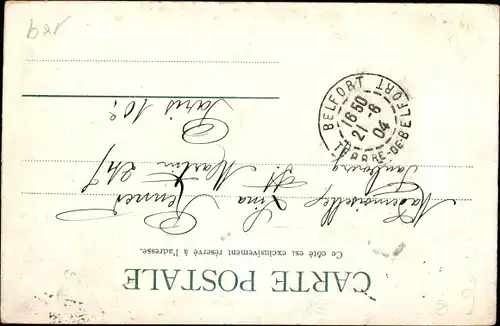 CARTE POSTALE
Ce côté est exclusivement réservé à l'adresse.
Mademoiselle Lina
Faubourg St Martin
Paris 10e
BELFORT
16 50
21 - 6
04
TERRRE-DE-BELFORT